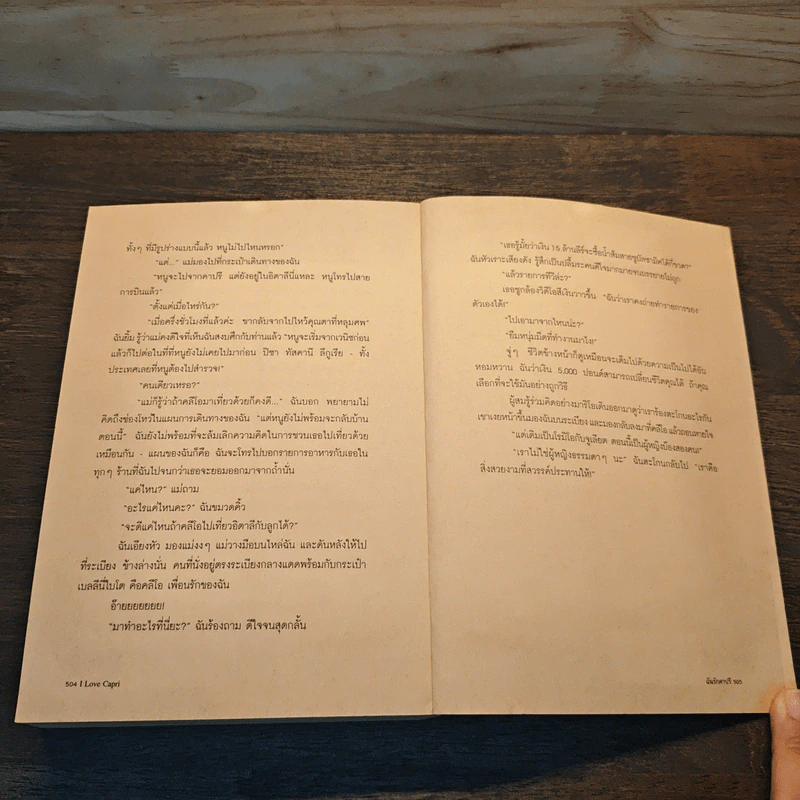 ทั้งๆ ที่มีรูปร่างแบบนี้แล้ว หนูไม่ไปไหนหรอก"
"แต่..." แม่มองไปที่กระเป๋าเดินทางของฉัน
"หนูจะไปจากคาปรี แต่ยังอยู่ในอิตาลีนี่แหละ หนูโทรไปสาย
การบินแล้ว"
"ตั้งแต่เมื่อไหร่กัน?"
"เมื่อครึ่งชั่วโมงที่แล้วค่ะ ขากลับจากไปไหว้คุณตาที่หลุมศพ"
ฉันยิ้ม รู้ว่าแม่คงดีใจที่เห็นฉันสงบศึกกับท่านแล้ว "หนูจะเริ่มจากเวนิซก่อน
แล้วก็ไปต่อในที่ที่หนูยังไม่เคยไปมาก่อน ปิซา ทัสคานี ลีกูเรีย - ทั้ง
ประเทศเลยที่หนูต้องไปสำรวจ!"
"คนเดียวเหรอ?"
"แม่ก็รู้ว่าถ้าคลีโอมาเที่ยวด้วยก็คงดี..." ฉันบอก พยายามไม่
คิดถึงช่องโหว่ในแผนการเดินทางของฉัน "แต่หนูยังไม่พร้อมจะกลับบ้าน
ตอนนี้" ฉันยังไม่พร้อมที่จะล้มเลิกความคิดในการชวนเธอไปเที่ยวด้วย
เหมือนกัน - แผนของฉันก็คือ ฉันจะโทรไปบอกรายการอาหารกับเธอใน
ทุกๆ ร้านที่ฉันไปจนกว่าเธอจะยอมออกมาจากถ้ำนั่น
"แค่ไหน?" แม่ถาม
"อะไรแค่ไหนคะ?" ฉันขมวดคิ้ว
"จะดีแค่ไหนถ้าคลีโอไปเที่ยวอิตาลีกับลูกได้?"
ฉันเอียงหัว มองแม่งงๆ แม่วางมือบนไหล่ฉัน และดันหลังให้ไป
ที่ระเบียง ข้างล่างนั่น คนที่นั่งอยู่ตรงระเบียงกลางแดดพร้อมกับกระเป๋า
เบลลีนี่ไบโต คือคลีโอ เพื่อนรักของฉัน
อ๊ายยยยยยย!
"มาทำอะไรที่นี่ยะ?" ฉันร้องถาม ดีใจจนสุดกลั้น
504 I Love Capri
"เธอรู้มั้ยว่าเงิน 15 ล้านลีร์จะซื้อน้ำส้มสายชูบัลซามิคได้กี่ขวด?"
ฉันหัวเราะเสียงดัง รู้สึกเป็นปลื้มระคนดีใจมากมายจนบรรยายไม่ถูก
"แล้วรายการทีวีล่ะ?"
เธอชูกล้องวิดีโอสีเงินวาวขึ้น "ฉันว่าเราคงถ่ายทำรายการของ
ตัวเองได้!"
"ไปเอามาจากไหนน่ะ?"
"ยืมหนุ่มมืดที่ทำงานมาไง!"
ชู่ๆ ชีวิตข้างหน้าก็ดูเหมือนจะเต็มไปด้วยความเป็นไปได้อัน
หอมหวาน ฉันว่าเงิน 5,000 ปอนด์สามารถเปลี่ยนชีวิตคุณได้ ถ้าคุณ
เลือกที่จะใช้มันอย่างถูกวิธี
ผู้สมรู้ร่วมคิดอย่างมาริโอเดินออกมาดูว่าเราร้องตะโกนอะไรกัน
เขาเงยหน้าขึ้นมองฉันบนระเบียง และมองกลับลงมาที่คลีโอ แล้วถอนหายใจ
"แต่เดิมเป็นโรมิโอกับจูเลียต ตอนนี้เป็นผู้หญิงบ๊องสองคน!"
"เราไม่ใช่ผู้หญิงธรรมดาๆ นะ" ฉันตะโกนกลับไป "เราคือ
สิ่งสวยงามที่สวรรค์ประทานให้!"
ฉันรักคาปรี 505